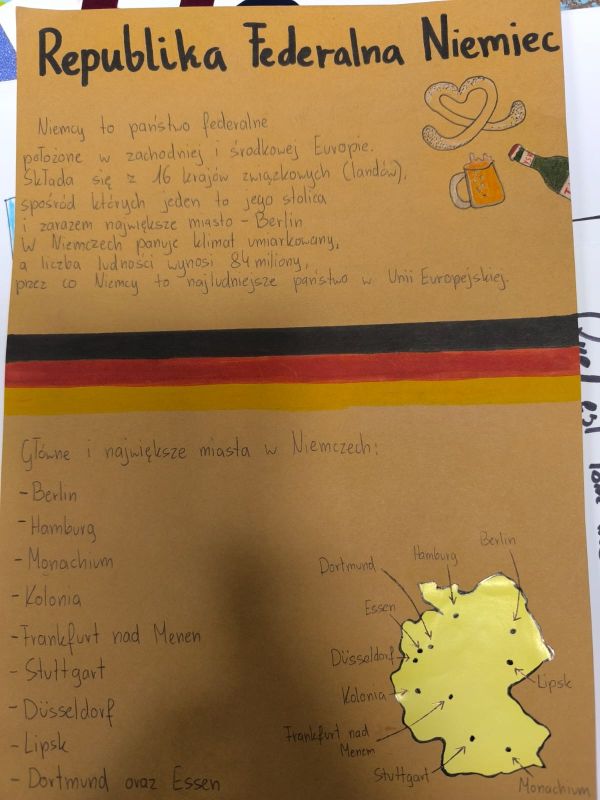 Republika Federalna Niemiec
Niemcy to państwo federalne
położone w zachodniej i środkowej Europie.
Składa się z 16 krajów związkowych (landów),
spośród których jeden to jego stolica
i zarazem największe miasto - Berlin
W Niemczech panuje klimat umiarkowany,
a liczba ludności wynosi 84 miliony,
przez co Niemcy to najludniejsze państwo w Unii Europejskiej.
Główne i największe miasta w Niemczech:
- Berlin
- Hamburg
- Monachium
- Kolonia
- Frankfurt nad Menen
- Stuttgart
- Düsseldorf
- Lipsk
- Dortmund oraz Essen
Berlin
Hamburg
Dortmund
Essen
Düsseldorf
Lipsk
Kolonia
Frankfurt nad
Menem
Stuttgart
Monachium